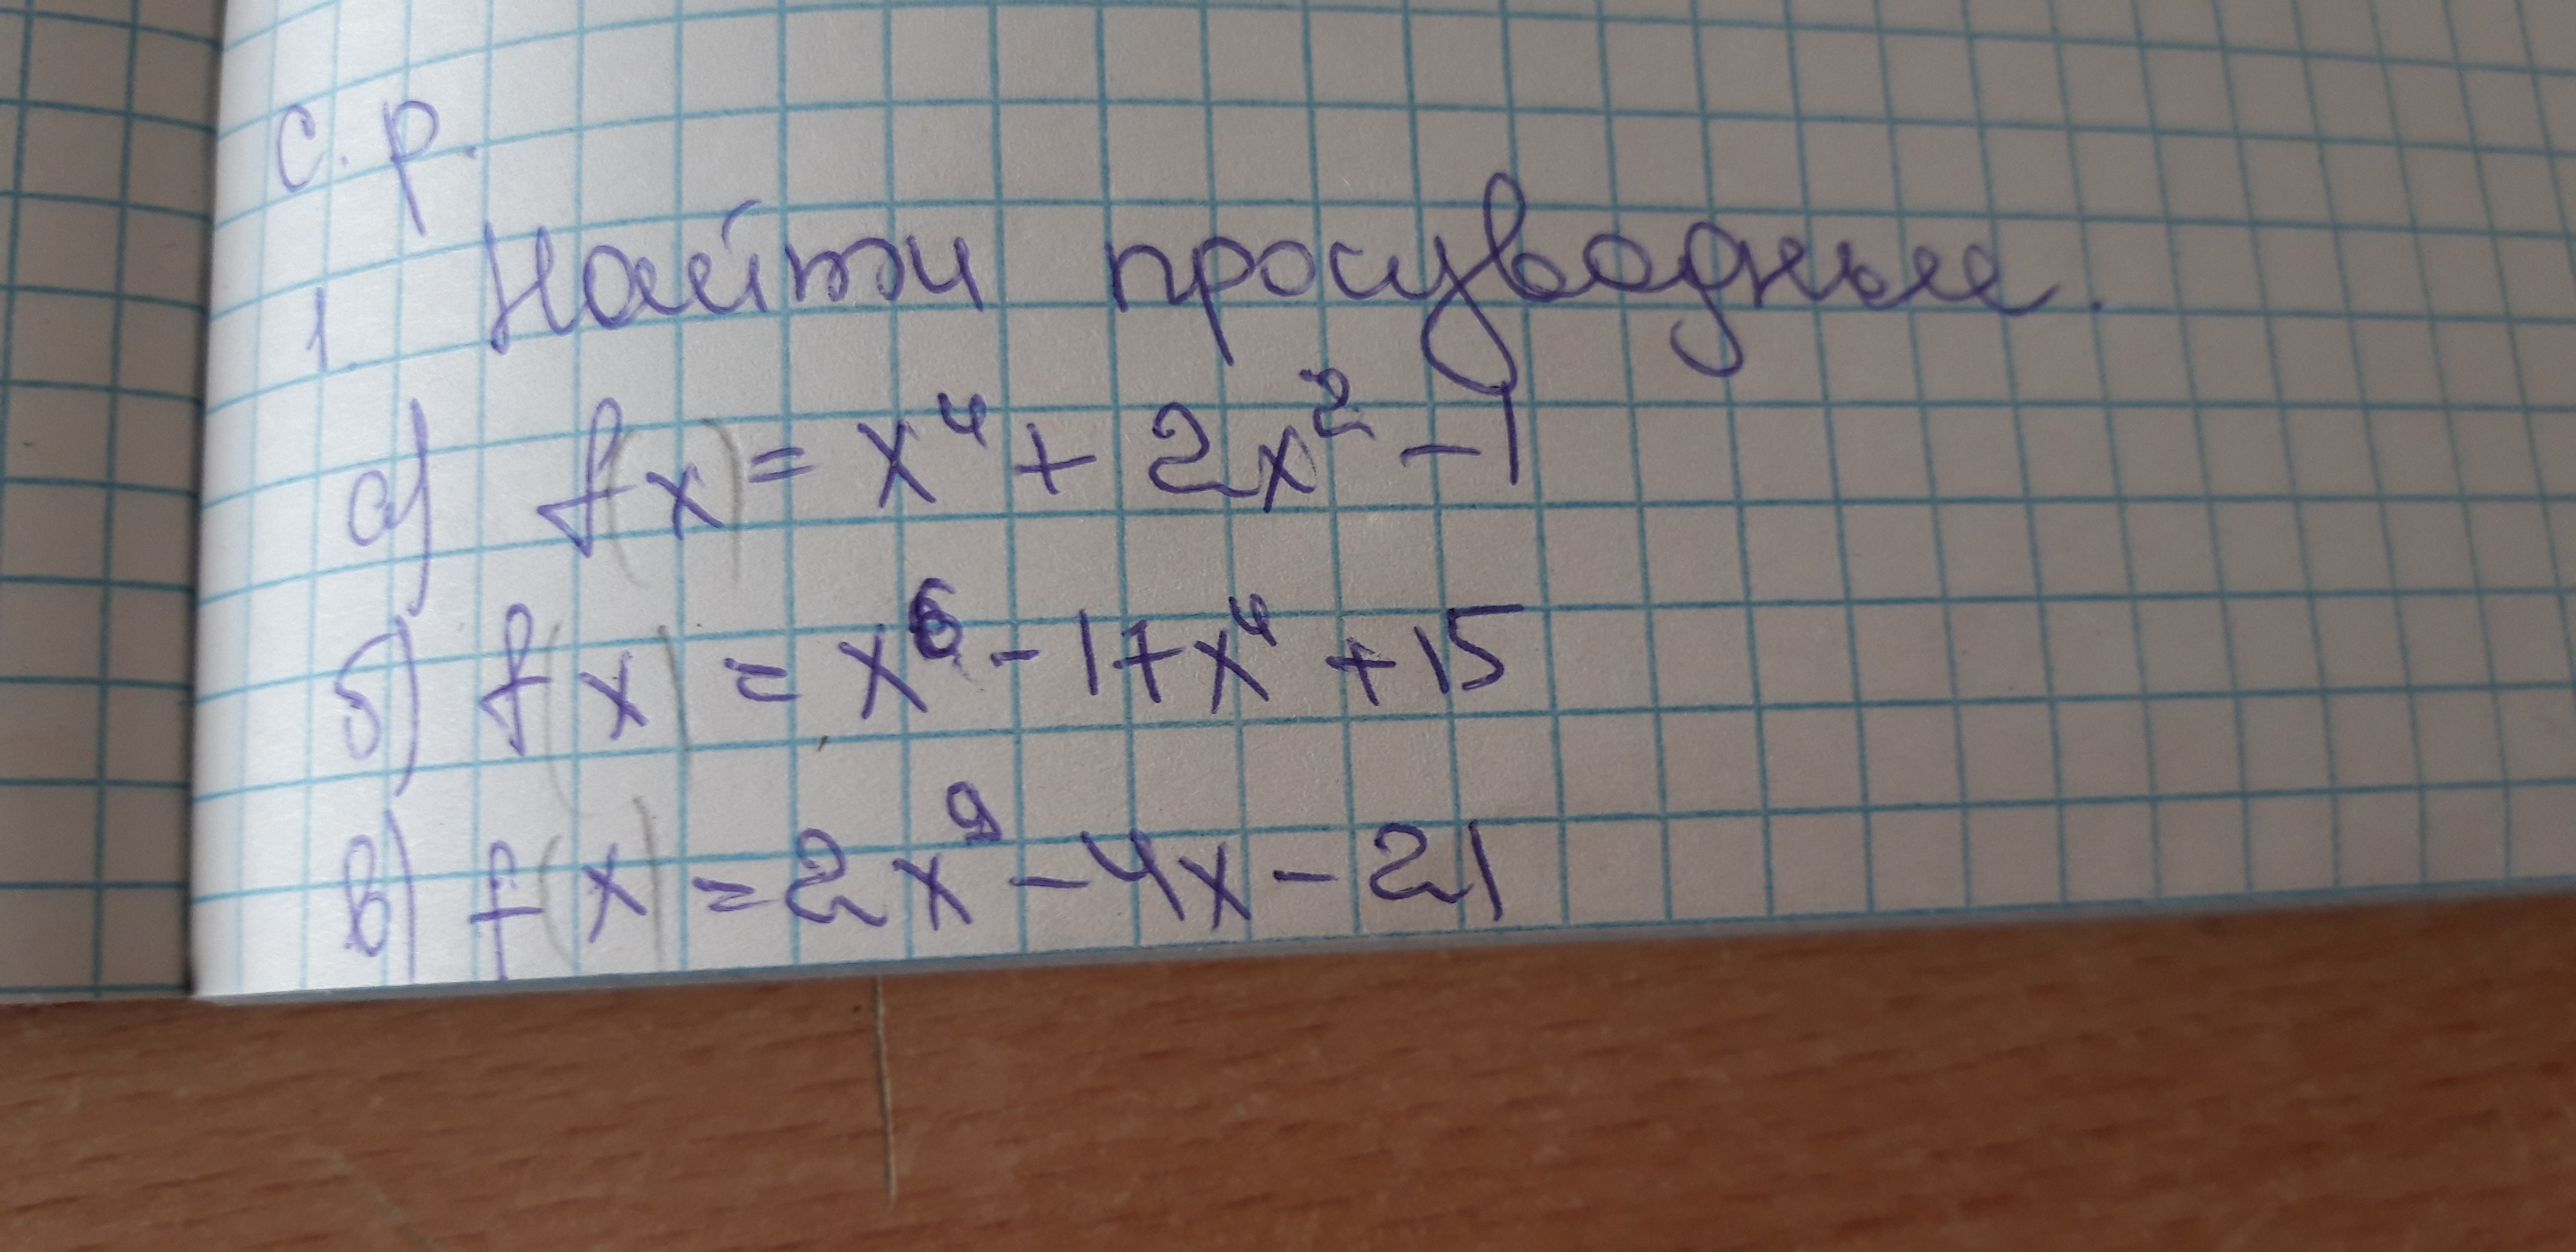 с. р.
1. Найти производные.
а) f(x) = x⁴ + 2x² - 1
б) f(x) = x⁶ - 17x⁴ + 15
в) f(x) = 2x⁹ - 4x - 21